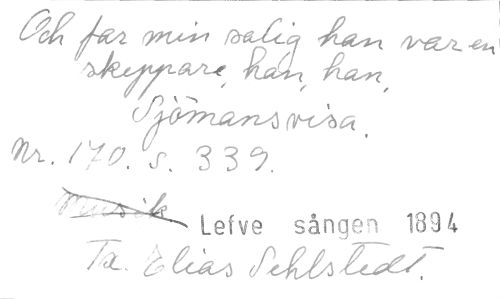 Och far min salig han var en
skeppare, han, han,
Sjömansvisa.
Nr. 170. s. 339.
Musik
Lefve sången 1894
Tx. Elias Sehlstedt.